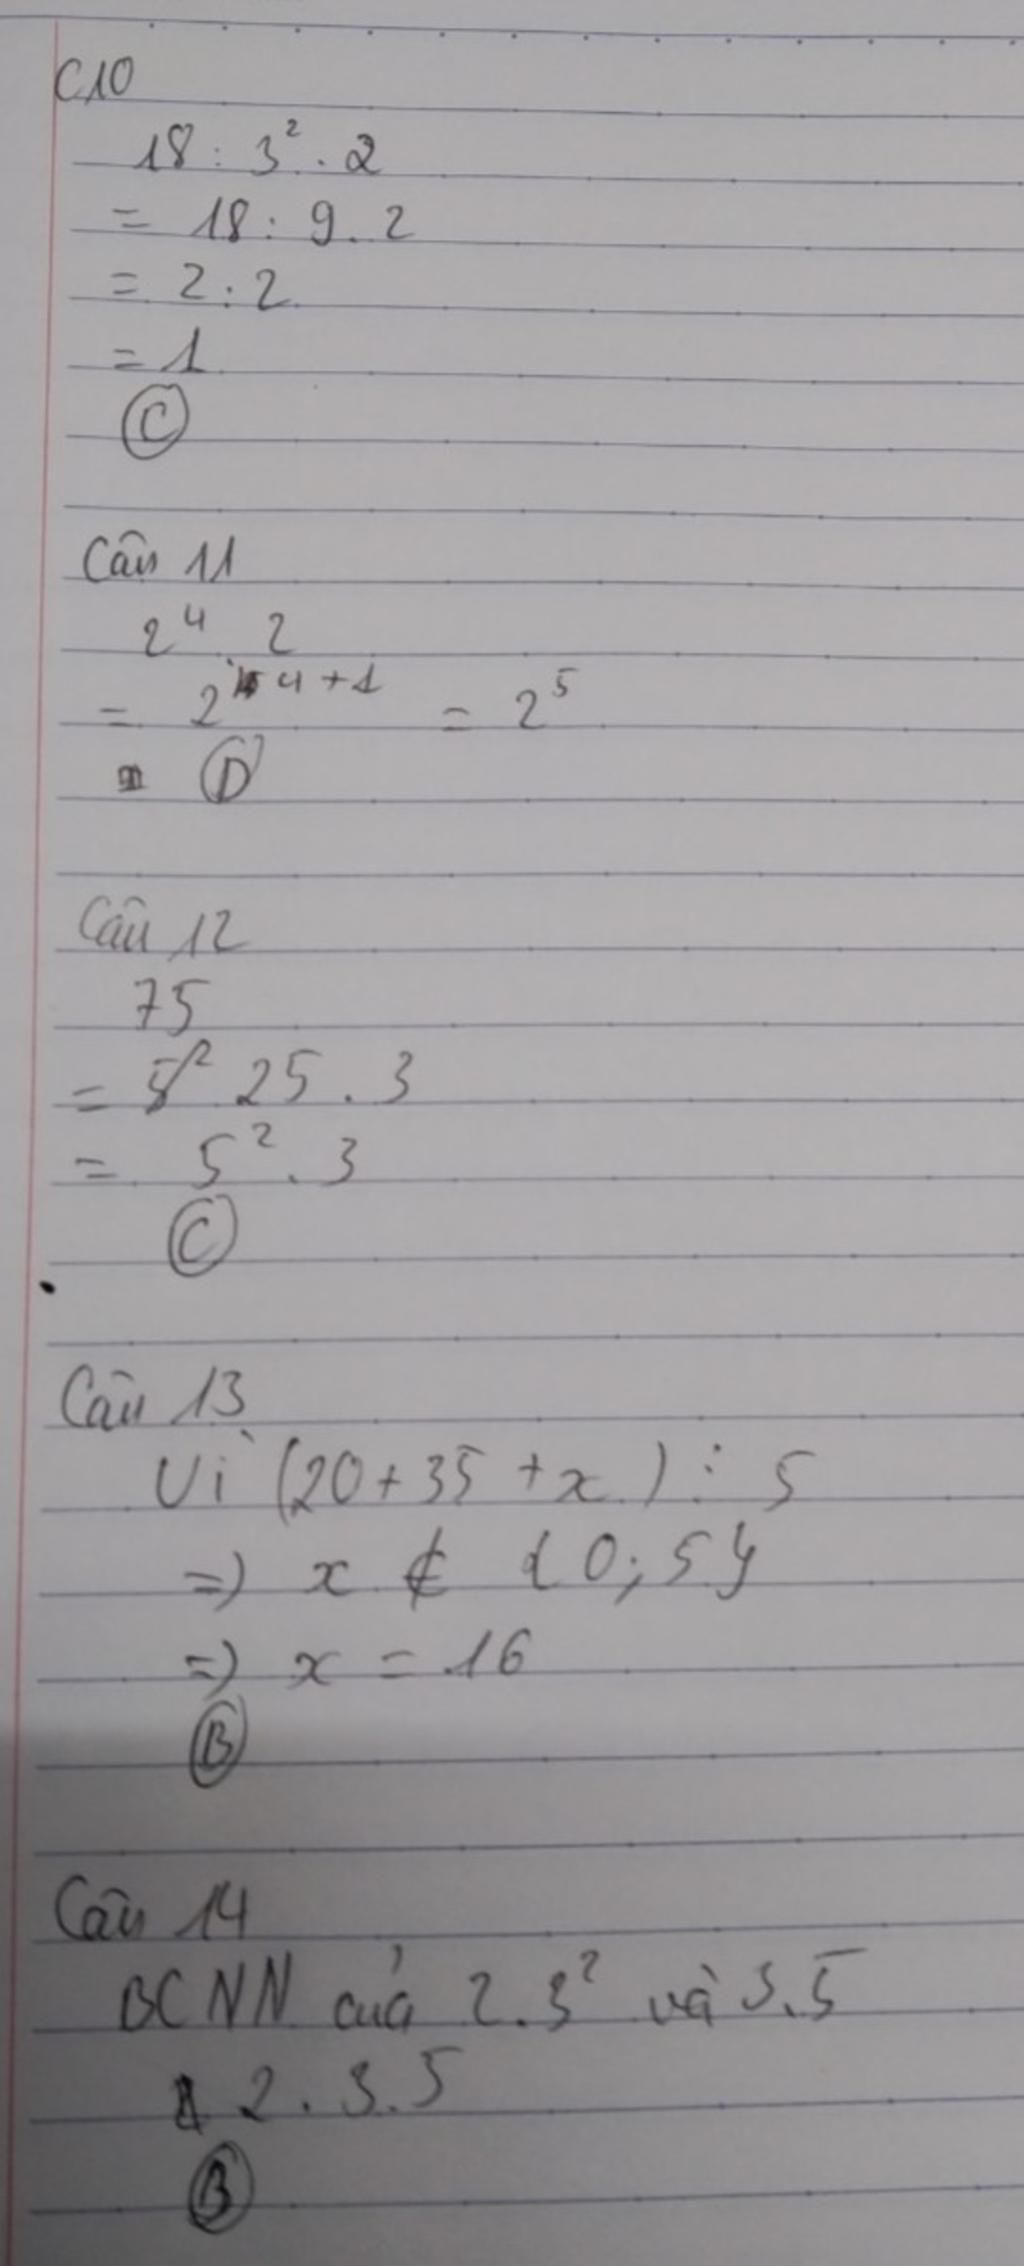 C10
18 : 3² . 2
= 18 : 9 . 2
= 2 : 2
= 1
C
Câu 11
2⁴ . 2
= 2⁴⁺¹ = 2⁵
D
Câu 12
75
= 25 . 3
= 5² . 3
C
Câu 13
Vì (20 + 35 + x) ⋮ 5
=) x ∉ {0; 5}
=) x = 16
B
Câu 14
BCNN của 2.3² và 3.5
2 . 3 . 5
B